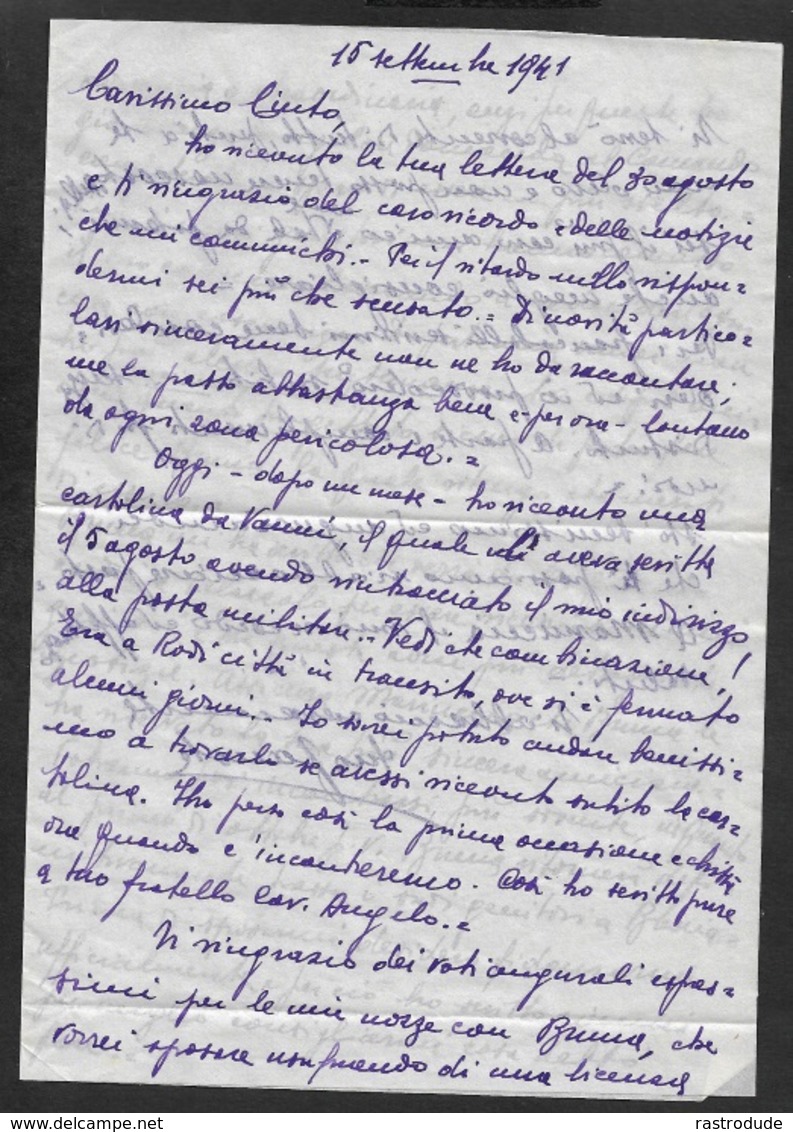 15 settembre 1941
Carissimo Cinto,
ho ricevuto la tua lettera del 30 agosto
e ti ringrazio del caro ricordo e delle notizie
che mi communichi.- Per il ritardo nello rispon=
dermi sei più che scusato.= Di novità partico=
lari sinceramente non ne ho da raccontare;
me la passo abbastanza bene e - per ora - lontano
da ogni zona pericolosa.=
Oggi - dopo un mese - ho ricevuto una
cartolina da Vanni, il quale mi aveva scritto
il 5 agosto avendo rintracciato il mio indirizzo
alla posta militare.- Vedi che combinazione!
Era a Rodi città in transito, ove si è fermato
alcuni giorni.- Io sarei potuto andare benissi=
mo a trovarlo se avessi ricevuto subito la car=
tolina. Ho perso così la prima occasione e chissà
ora quando c'incontreremo. Così ho scritto pure
a tuo fratello Cav. Angelo.=
Ti ringrazio dei voti augurali espres=
simi per le mie nozze con Bruna, che
vorrei sposare usufruendo di una licenza
rastrodude